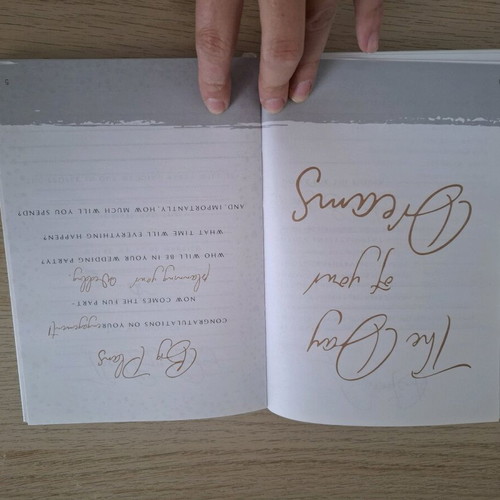 The Day
of your
Dreams
Big Plans
CONGRATULATIONS ON YOUR engagement!
NOW COMES THE FUN PART -
planning your Wedding
WHO WILL BE IN YOUR WEDDING PARTY?
WHAT TIME WILL EVERYTHING HAPPEN?
AND, IMPORTANTLY, HOW MUCH WILL YOU SPEND?